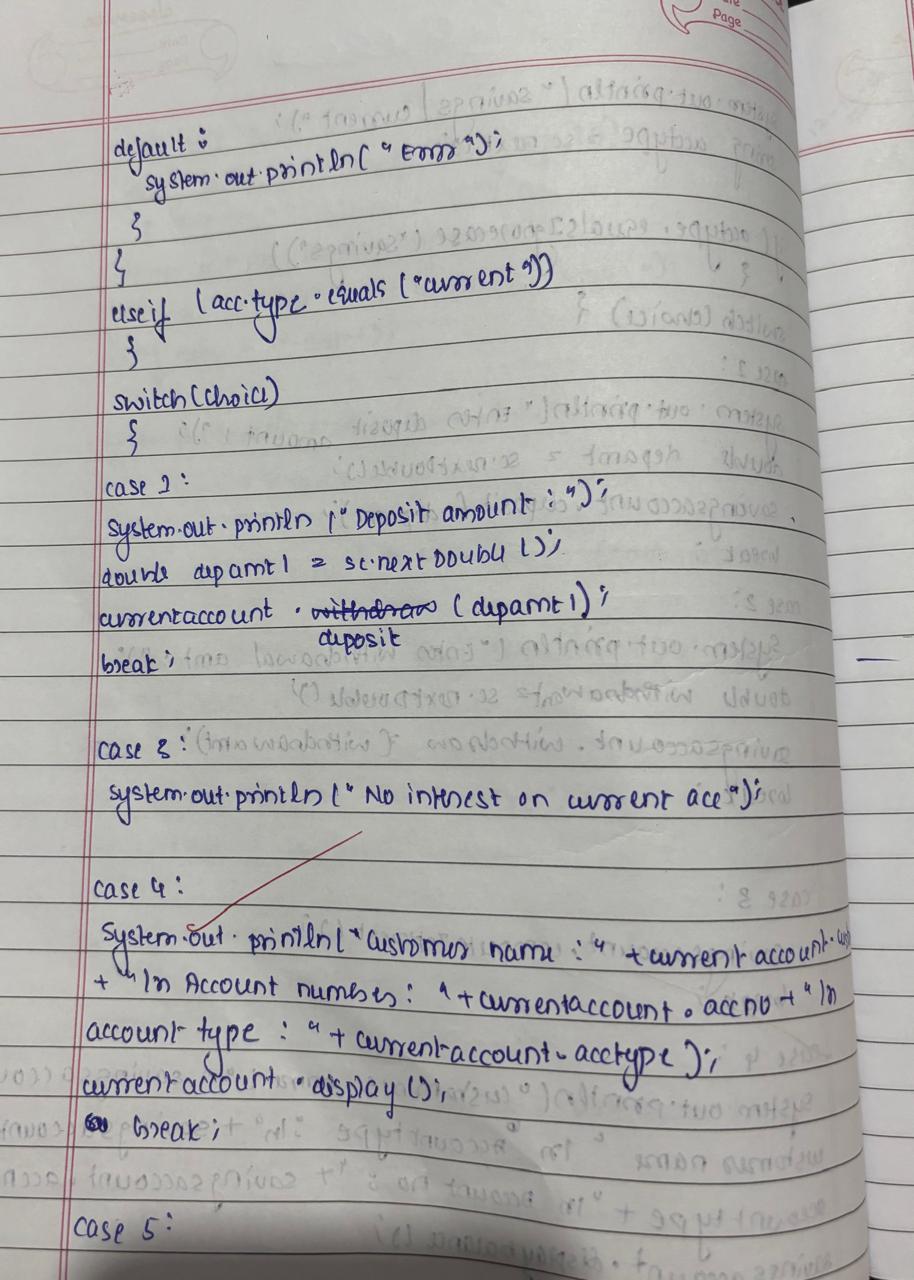 Page
default :
system.out.println( "Error");
}
}
else if (acc.type.equals ("current"))
{
switch(choice)
{
case 1:
system.out.println (" Deposit amount : ");
double depamt1 = sc.nextDouble ();
currentaccount . withdraw (depamt1);
deposit
break ;
case 3 :
system.out.println (" No interest on current acc ");
case 4 :
System.out.println (" Customer name : " + current account.
+ "\n Account number : " + currentaccount . accno + "\n
account type : " + current account . acctype );
current account . display ();
break ;
case 5 :